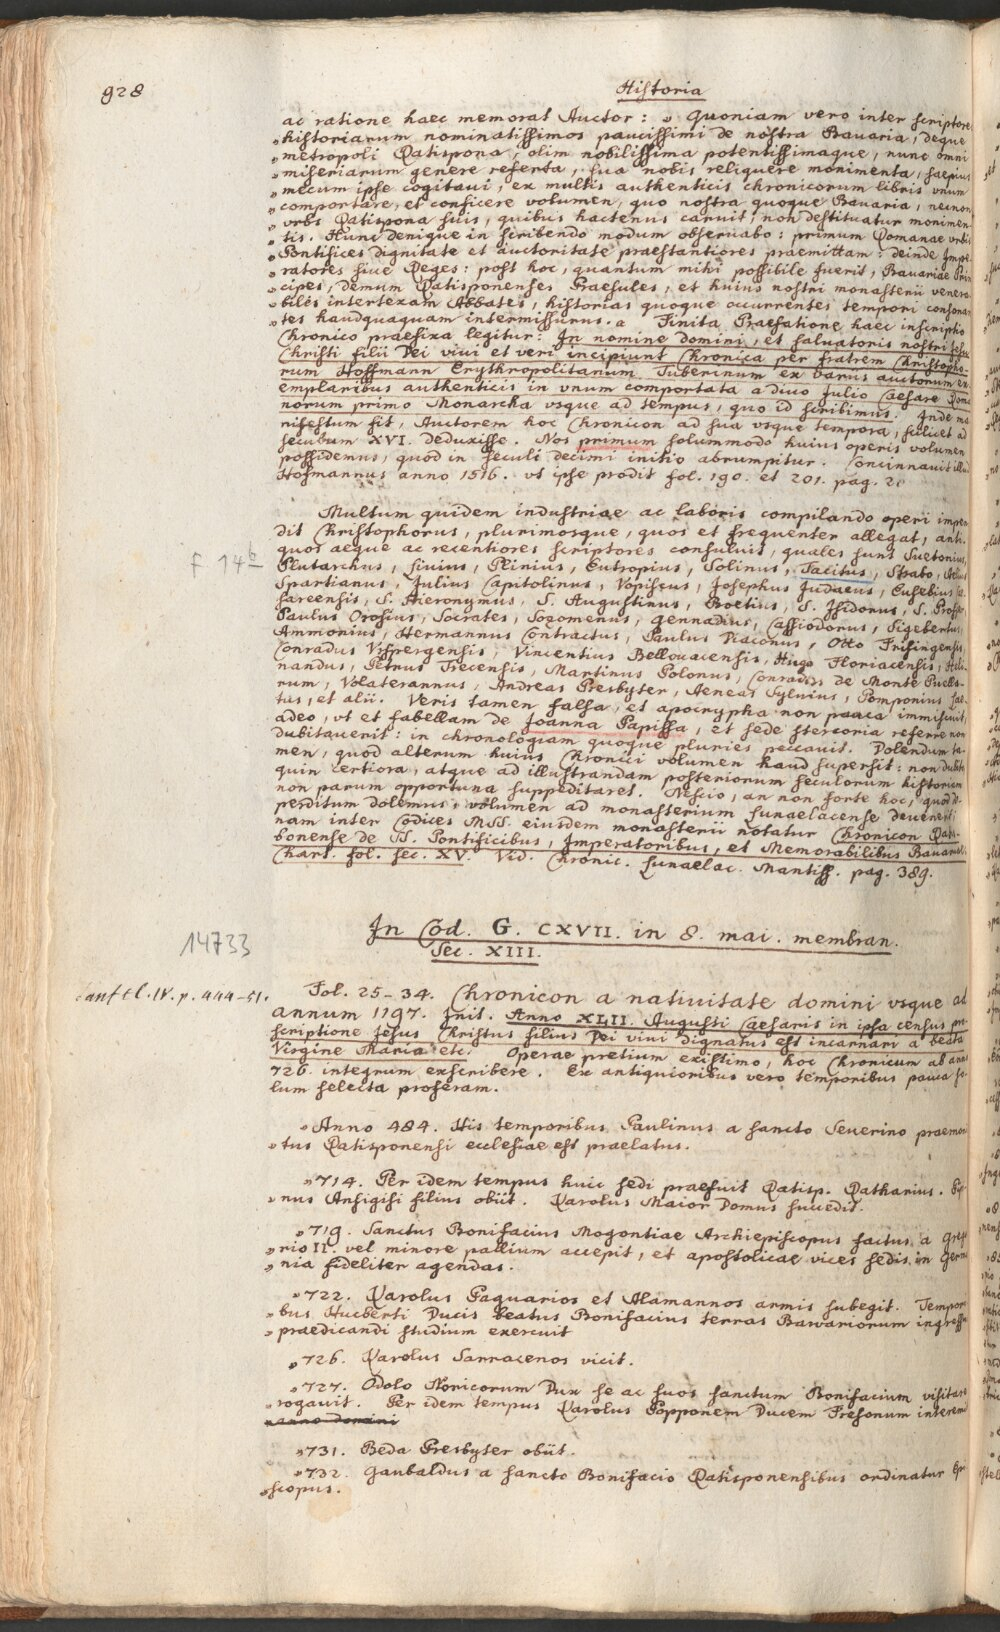 928
Historia
ac ratione haec memorat Auctor: „ Quoniam vero inter scriptores
„historiarum nominatissimos paucissimi de nostra Bauaria, deque
„metropoli Ratispona, olim nobilissima potentissimaque, nunc omni
„miseriarum genere referta, sua nobis reliquere monimenta, saepius
„mecum ipse cogitaui, ex multis authenticis chronicorum libris vnum
„comportare, et conficere volumen, quo nostra quoque Bauaria, necnon
„vrbs Ratispona suis, quibus hactenus caruit, non destituatur monimen-
„tis. Hunc denique in scribendo modum obseruabo: primum Romanae vrbis
„Pontifices dignitate et auctoritate praestantiores praemittam: deinde Impe-
„ratores siue Reges: post hoc, quantum mihi possibile fuerit, Bauariae Prin
„cipes, demum Ratisponenses Praesules, et huius nostri monasterii venera-
„biles intertexam Abbates, historias quoque occurrentes tempori consonan
„tes haudquaquam intermissurus. a Finita Praefatione haec inscriptio
Chronico praefixa legitur: In nomine domini, et saluatoris nostri Jesu
Christi filii Dei viui et veri incipiunt Chronica per fratrem Christopho-
rum Hoffmann Erythropolitanum Tuberinum ex variis auctorum ex
emplaribus authenticis in vnum comportata a diuo Julio Caesare Roma
norum primo Monarcha vsque ad tempus, quo id scribimus. Inde ma
nifestum fit, Auctorem hoc Chronicon ad sua vsque tempora, scilicet ad
seculum XVI. deduxisse. Nos primum solummodo huius operis volumen
possidemus, quod in seculi decimi initio abrumpitur. Concinnauit illud
Hofmannus anno 1516. vt ipse prodit fol. 190. et 201. pag. 2.
Multum quidem industriae ac laboris compilando operi impen
dit Christophorus, plurimosque, quos et frequenter allegat, anti-
quos aeque ac recentiores scriptores consuluit, quales sunt Suetonius,
F 14b
Plutarchus, Liuius, Plinius, Eutropius, Solinus, Tacitus, Strabo, Aelius
Spartianus, Julius Capitolinus, Vopiscus, Josephus Judaeus, Eusebius Cae
sareensis, S. Hieronymus, S. Augustinus, Boetius, S. Isidorus, S. Prosper
Paulus Orosius, Socrates, Sozomenus, Gennadius, Cassiodorus, Sigebertus,
Ammonius, Hermannus Contractus, Paulus Diaconus, Otto Frisingensis,
Conradus Vrspergensis, Vincentius Bellouacensis, Hugo Floriacensis, Heli-
nandus, Petrus Trecensis, Martinus Polonus, Conradus de Monte Puella-
rum, Volaterannus, Andreas Presbyter, Aeneas Syluius, Pomponius Lae-
tus, et alii. Veris tamen falsa, et apocrypha non pauca immiscuit,
adeo, vt et fabellam de Joanna Papissa, et sede stercoria referre non
dubitauerit: in chronologiam quoque pluries peccauit. Dolendum ta-
men, quod alterum huius Chronici volumen haud supersit: non dubito
quin certiora, atque ad illustrandam posteriorum seculorum historiam
non parum opportuna suppeditaret. Nescio, an non forte hoc, quod de-
perditum dolemus, volumen ad monasterium Lunaelacense deuenerit:
nam inter Codices MSS. eiusdem monasterii notatur Chronicon Ratis-
bonense de SS. Pontificibus, Imperatoribus, et Memorabilibus Bauariae
Chart. fol. sec. XV. Vid. Chronic. Lunaelac. Mantiss. pag. 389.
14733
In Cod. G. CXVII. in 8. mai. membran.
Sec. XIII.
Canft l. IV. p. 444-51.
Fol. 25-34. Chronicon a natiuitate domini vsque ad
annum 1197. Init. Anno XLII. Augusti Caesaris in ipsa census pro-
scriptione Jesus Christus filius Dei viui dignatus est incarnari a beata
Virgine Maria etc. Operae pretium existimo, hoc Chronicum ab anno
726. integrum exscribere. Ex antiquioribus vero temporibus pauca so-
lum selecta proferam.
„Anno 484. His temporibus Paulinus a sancto Seuerino praemoni
„tus Ratisponensi ecclesiae est praelatus.
„714. Per idem tempus huic sedi praefuit Ratisp. Ratharius. Pip-
„nus Ansigisi filius obiit. Karolus Maior Domus succedit.
„719. Sanctus Bonifacius Mogontiae Archiepiscopus factus a Grego
„rio II. vel minore pallium accepit, et apostolicae vices sedis in Germa
„nia fideliter agendas.
„722. Karolus Paguarios et Alamannos armis subegit. Tempori
„bus Hucberti Ducis beatus Bonifacius terras Bawariorum ingressus
„praedicandi studium exercuit
„726. Karolus Sarracenos vicit.
„727. Odolo Noricorum Dux se ac suos sanctum Bonifacium visitare
„rogauit. Per idem tempus Karolus Popponem Ducem Fresonum interemi
anno domini
„731. Beda Presbyter obiit.
„732. Gaubaldus a sancto Bonifacio Ratisponensibus ordinatur Epi
„scopus.